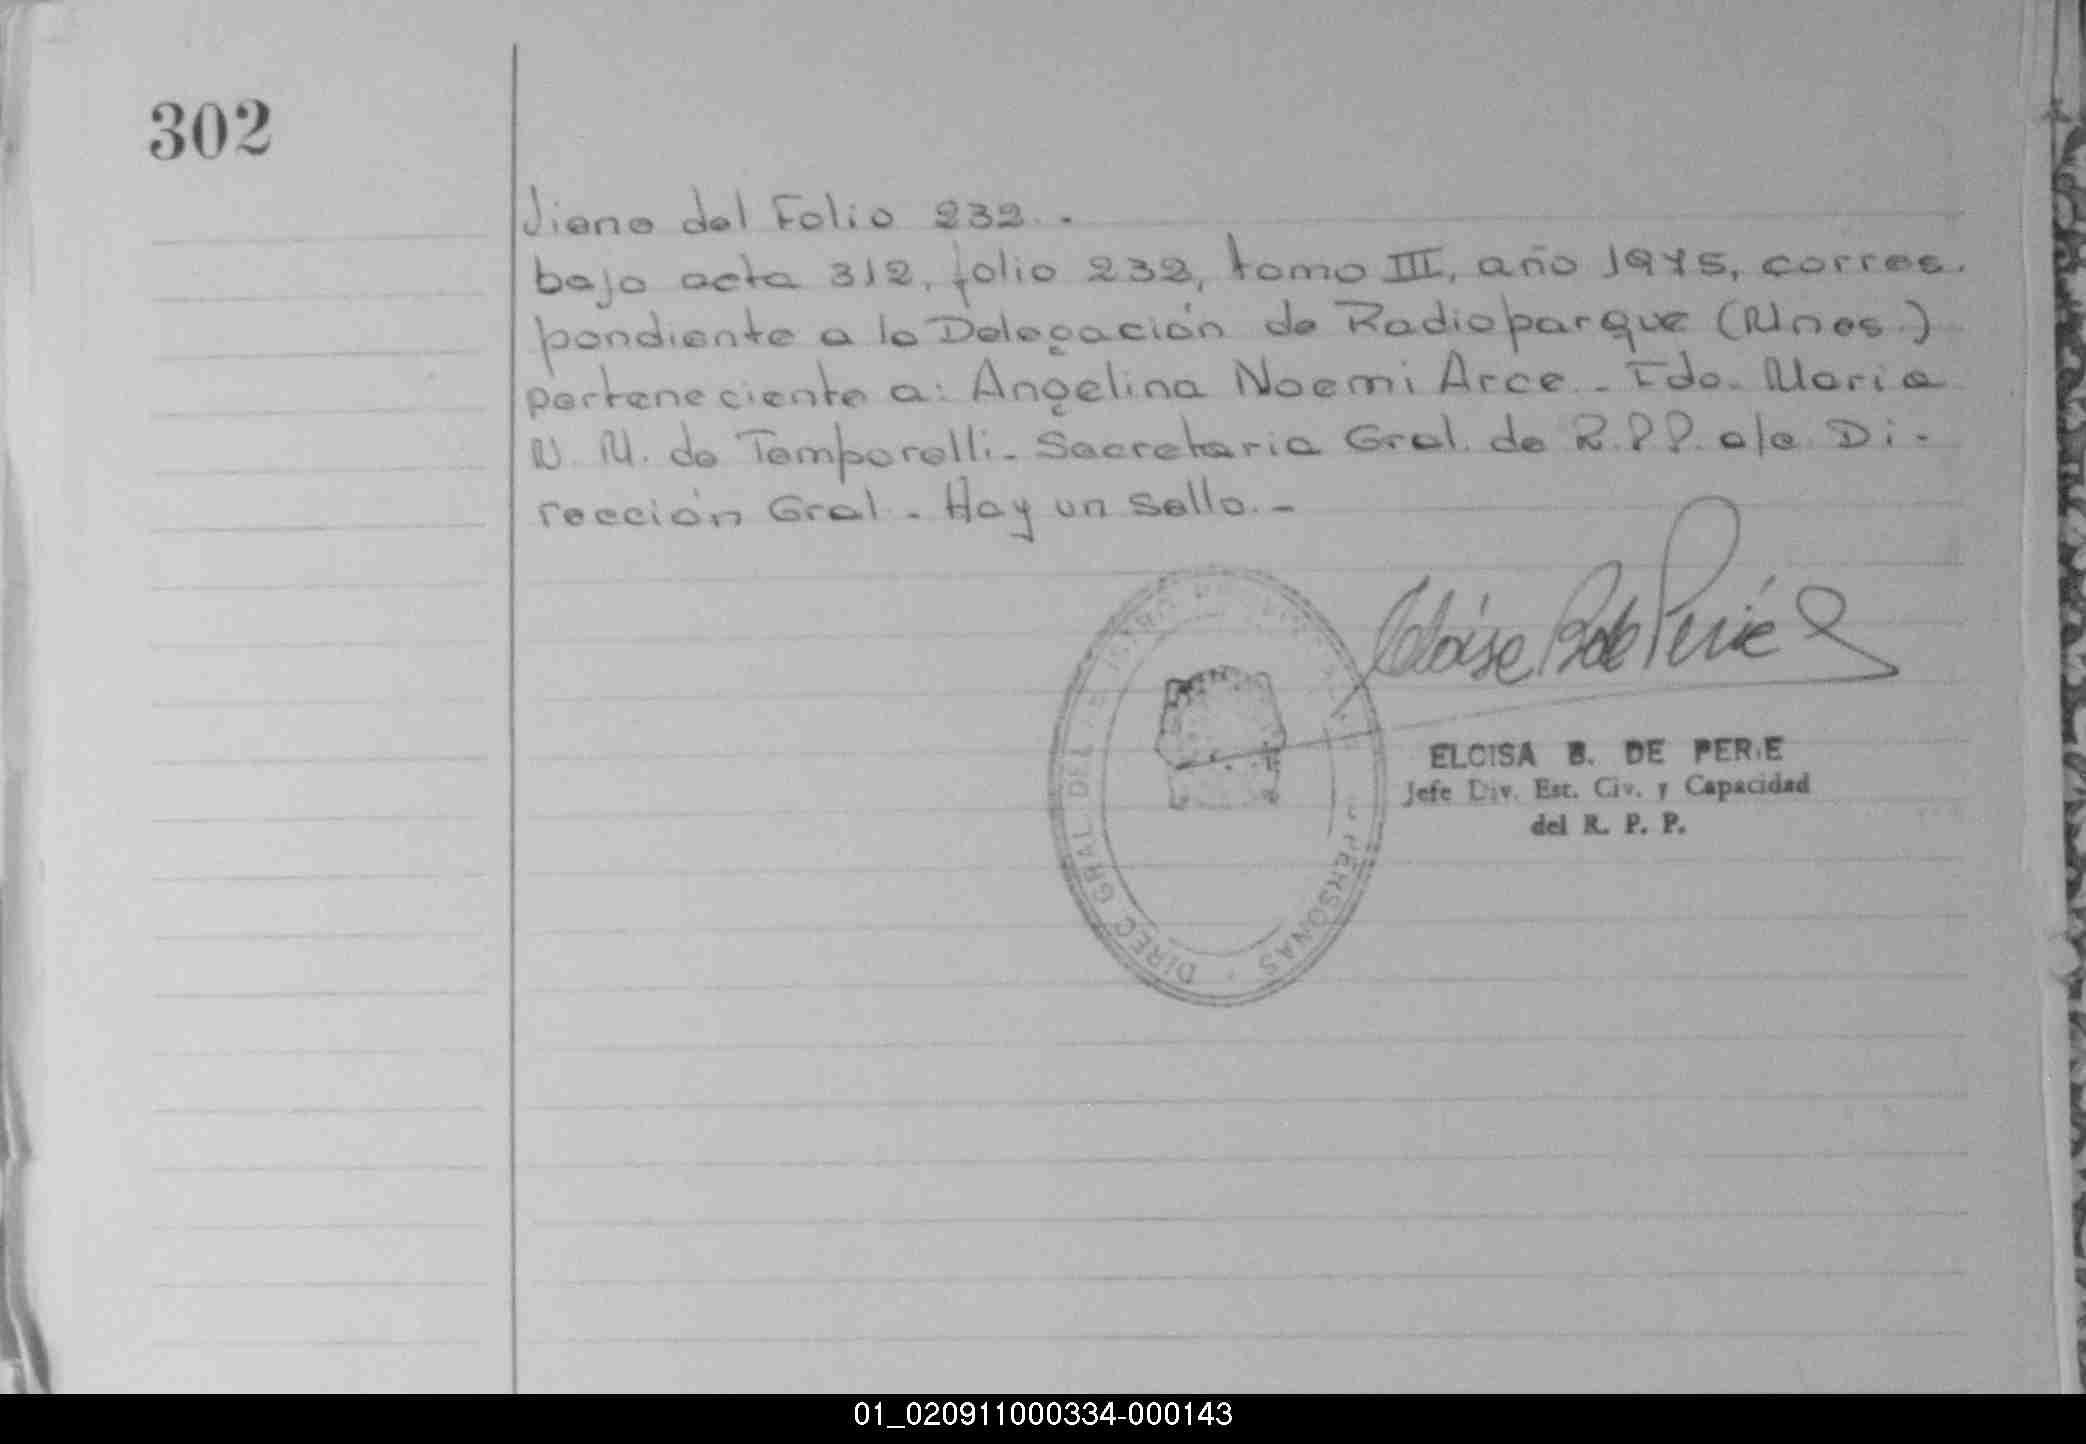 302
Viene del Folio 232. -
bajo acta 312, folio 232, tomo III, año 1975, corres-
pondiente a la Delegación de Radioparque (Mnes.)
perteneciente a: Angelina Noemi Arce - Fdo. Maria
N. M. de Temporelli - Secretaria Gral. de R.P.P. a/c Di-
rección Gral. - Hay un sello. -
DIREC GRAL DEL PERSONAS
ELOISA B. DE PERIE
Jefe Div. Est. Civ. y Capacidad
del R. P. P.
01_020911000334-000143